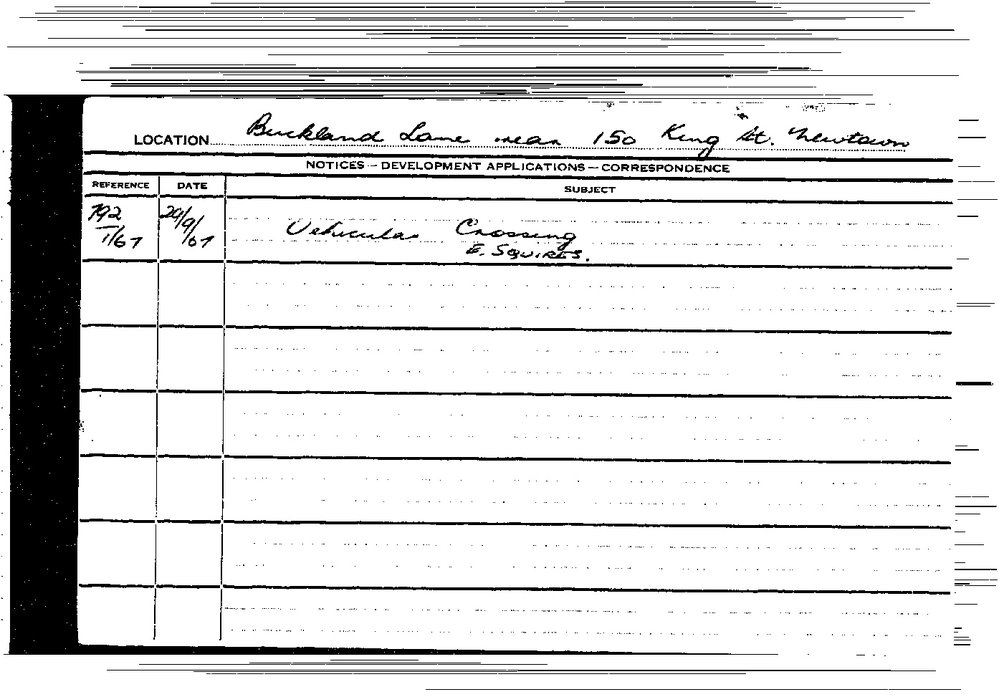 LOCATION Buckland Lane near 150 King St. Newtown
NOTICES — DEVELOPMENT APPLICATIONS — CORRESPONDENCE
REFERENCE DATE SUBJECT
792 29/9/67 Vehicular Crossing
1/67 E. SQUIRES.